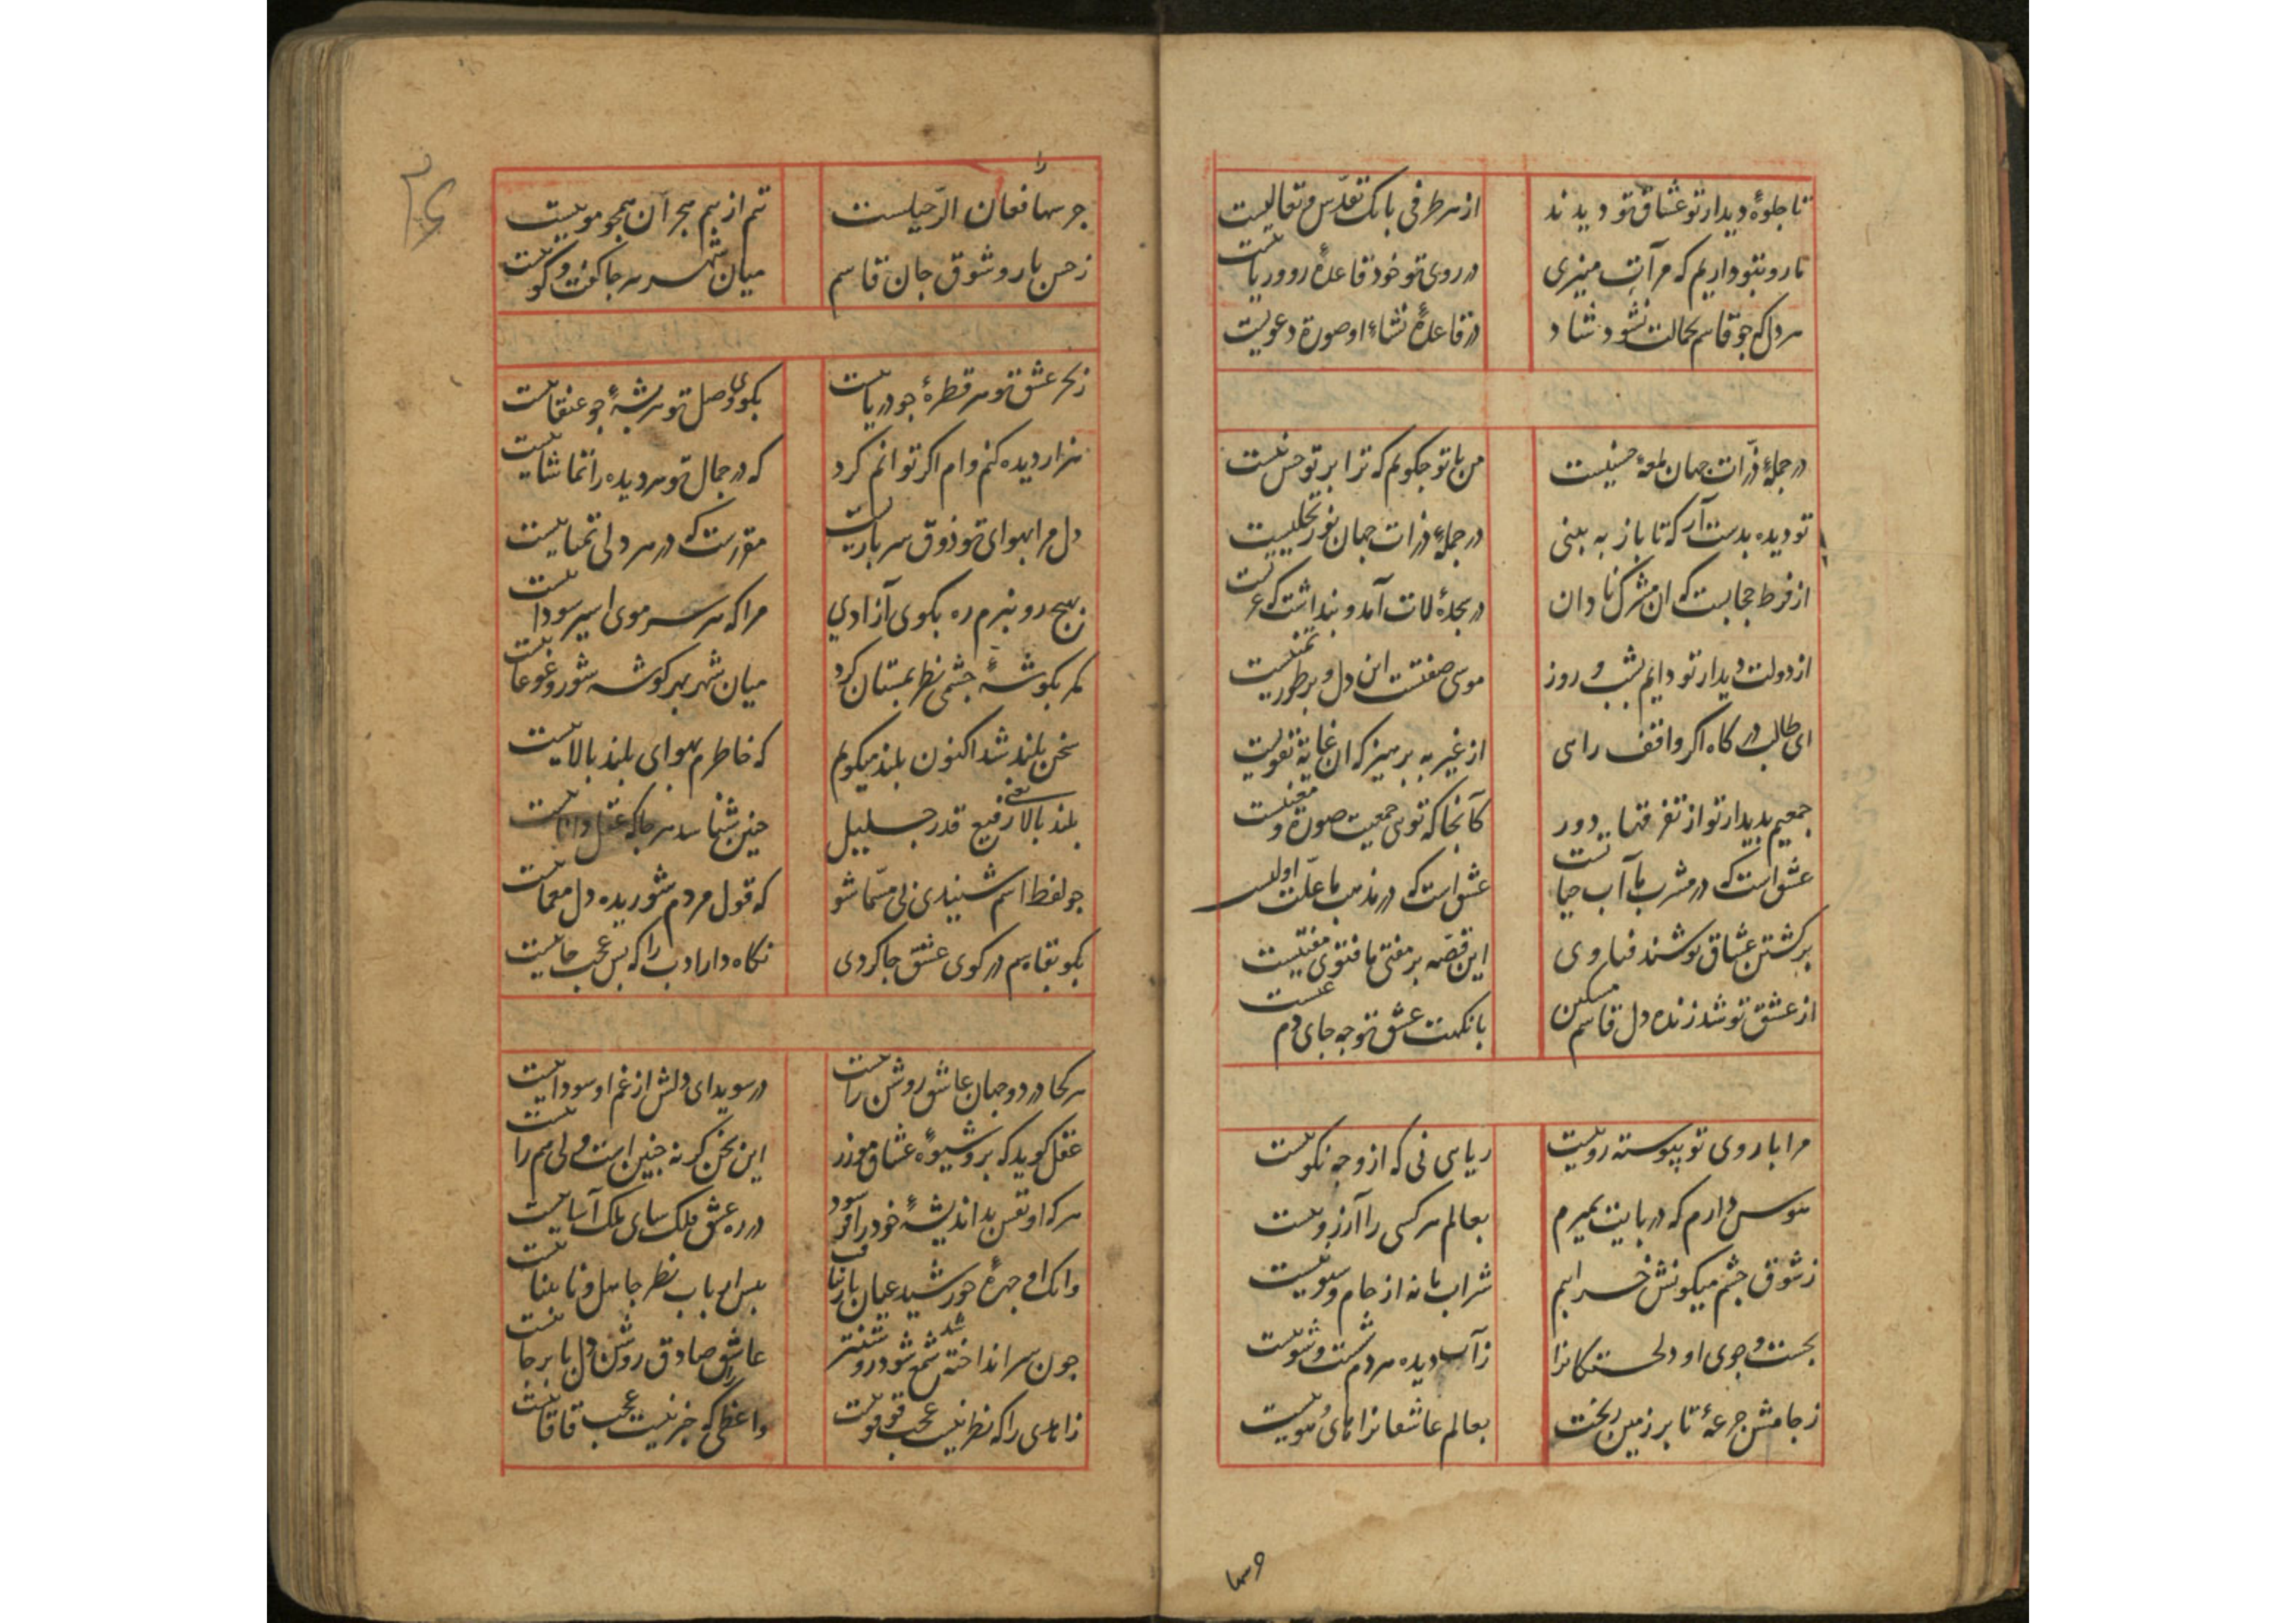 تا جلوهٔ دیدار تو عشاق تو دیدند
از هر طرفی بانک تقدّس و تعالیست
تا رو بتو داریم که مرآت منیری
در روی تو خود قاعدهٔ رو و ریاست
هر دل که چو قاسم بجمالت نشود شاد
در قاعدهٔ نشاءٔ او صورة دعویست
در جملهٔ ذرّات جهان لمعهٔ حسنیست
من با تو چکویم که ترا پرتو حس نیست
تو دیده بدست آر که تا باز به بینی
در جملهٔ ذرات جهان نور تجلیست
از فرط حجابست که ان مشرک نادان
در سجدهٔ لات آمد و پنداشت که عزیست
از دولت دیدار تو دایم بشب و روز
موسی صفتست این دل و بر طور تمنیست
ای طالب درکاه اکر واقف راهی
از غیر به پرهیز که ان غایة تقویست
جمعیم بدیدار تو از تفرقها دور
کانجا که توی جمعیت صورة و معنیست
عشق است که در مشرب ما آب حیاتست
عشق است که در مذهب ما علّت اولیست
بر کشتن عشاق نوشتند فتاوی
این قصّه بر مفتی ما فتوی مفتیست
از عشق تو شد زنده دل قاسم مسکین
با نکهت عشق تو چه جای دم عیسیست
مرا با روی تو پیوسته روییست
ریاهی نی که از وجه نکوییست
هوس دارم که در پایت بمیرم
بعالم هر کسی را آرزوییست
ز شوق چشم میکونش خرابیم
شراب ما نه از جام و سبوییست
بجست و جوی او دلخستکانرا
ز آب دیده هر دم شست و شوییست
ز جامش جرعهٔ تا بر زمین ریخت
بعالم عاشقانرا های و هوییست
وسها
جرسها را فغان الرّحیلست
تنم از بیم هجر آن همچو موییست
ز حسن یار و شوق جان قاسم
میان شهر هر جا کفت و کوییست
ز بحر عشق تو هر قطرهٔ چو دریاییست
بکوی وصل تو هر پشهٔ چو عنقاییست
هزار دیده کنم وام اکر توانم کرد
که در جمال تو هر دیده را تماشاییست
دل مرا بهوای تو ذوق سربازیست
مقررست که در هر دلی تمناییست
ز هیچ رو نبرم ره بکوی آزادی
مرا که هر سر موی اسیر سوداییست
مکر بکوشهٔ چشمی نظر بمستان کرد
میان شهر بهر کوشه شور و غوغاییست
سخن بلند شد اکنون بلند میکویم
که خاطرم بهوای بلند بالاییست
بلند بالا یعنی رفیع قدر جلیل
چنین شناسد هر جا که عقل داناییست
چو لفظ اسم شنیدی پی مسمّا شو
که قول مردم شوریده دل معماییست
بکو بقاسم در کوی عشق جا کردی
نکاه دار ادب را که بس عجب جاییست
هر کجا در دو جهان عاشق روشن راییست
در سویدای دلش از غم او سوداییست
عقل کوید که برو شیوهٔ عشاق مورز
این سخن کر نه چنین است ولی هم راییست
هر که او نفس بد اندیشهٔ خود را فرسود
در ره عشق فلک سای ملک آساییست
وانک او چهرهٔ خورشید عیان باز نیافت
پیش ارباب نظر جاهل و نابیناییست
چون سر انداخته شد شمع شود روشنتر
عاشق صادق روشن دل پا برجاییست
زاهدی را که نظر نیست عجب قوقوییست
واعظی را که خبر نیست عجب قاقاییست